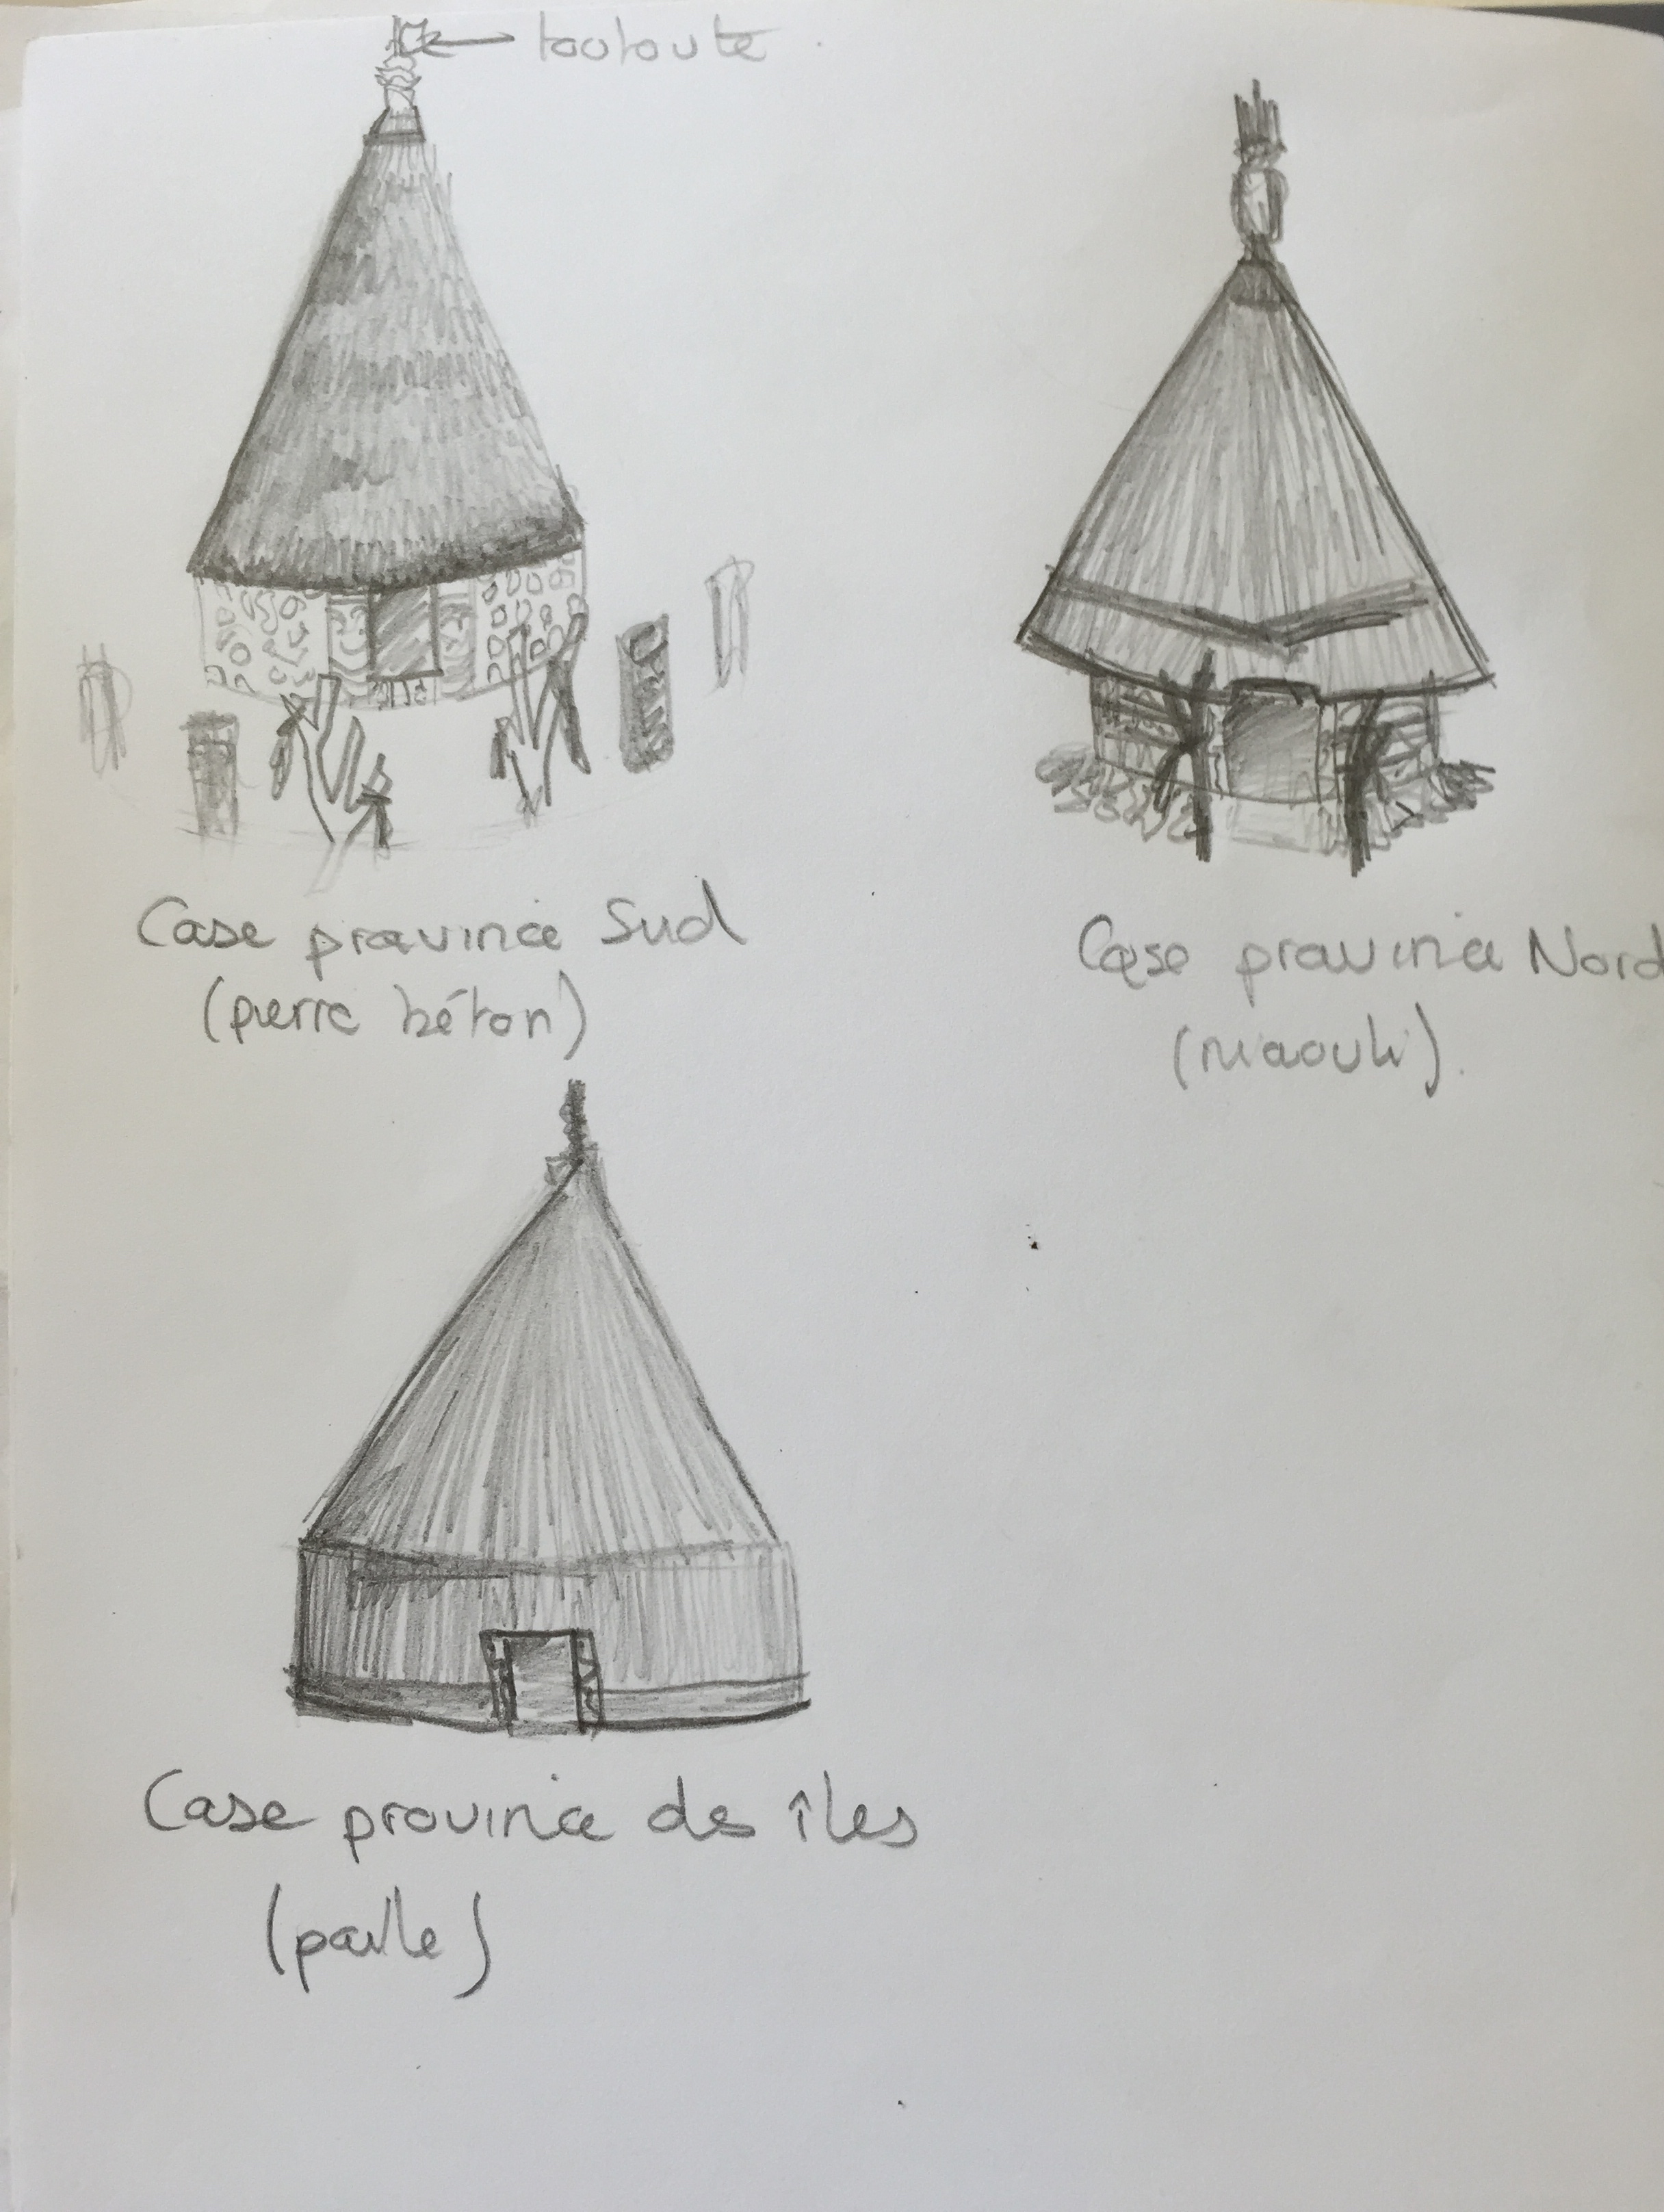 toutoute
Case province Sud
(pierre béton)
Case province Nord
(niaouli).
Case province des îles
(paille)